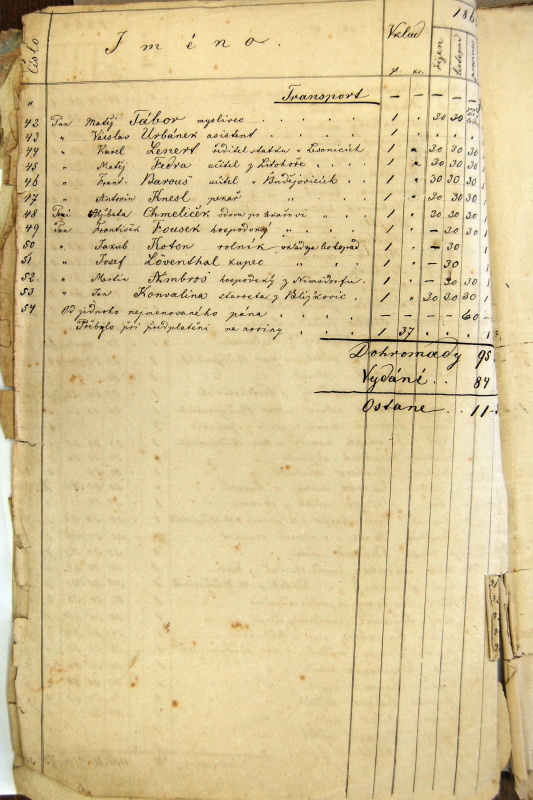 186
Číslo Jméno. Vklad říjen listopad prosinec
zl. kr.
" Transport — — — —
42 Pan Matěj Tábor myslivec . . . . 1 . 30 30
43 " Václav Urbánek asistent . . . . 1 . . . .
44 " Karel Lenert ředitel statku v Lesonicích 1 " 30 30 30
45 " Matěj Fedra učitel z Litohoře . . . 1 " 30 30 30
46 " Frant. Barouš učitel v Budějovicích . 1 " 30 30 30
47 " Antonín Knesl pekař " . . 1 " 30 30 30
48 Paní Alžběta Chmelíček vdova po lékařovi " . 1 . 30 30 30
49 Pan František Fousek hospodský " . 1 . — 30 30
50 " Jakub Koton rolník vkladuje listopad 1 . — 30
51 " Josef Löventhal kupec " . . 1 . — 30
52 " Martin Ambros hospodský z Nimsdorfu . 1 . — 30 30
53 " Jan Konvalina starosta z Blížkovic . 1 . 30 30 30 1
54 Od jednoho nejmenovaného pána . . . . — . . — 60 —
Přibylo při předplatení na noviny . . . . 1 37 . . .
Dohromady 95
Vydání . . 84
Ostane . . 11